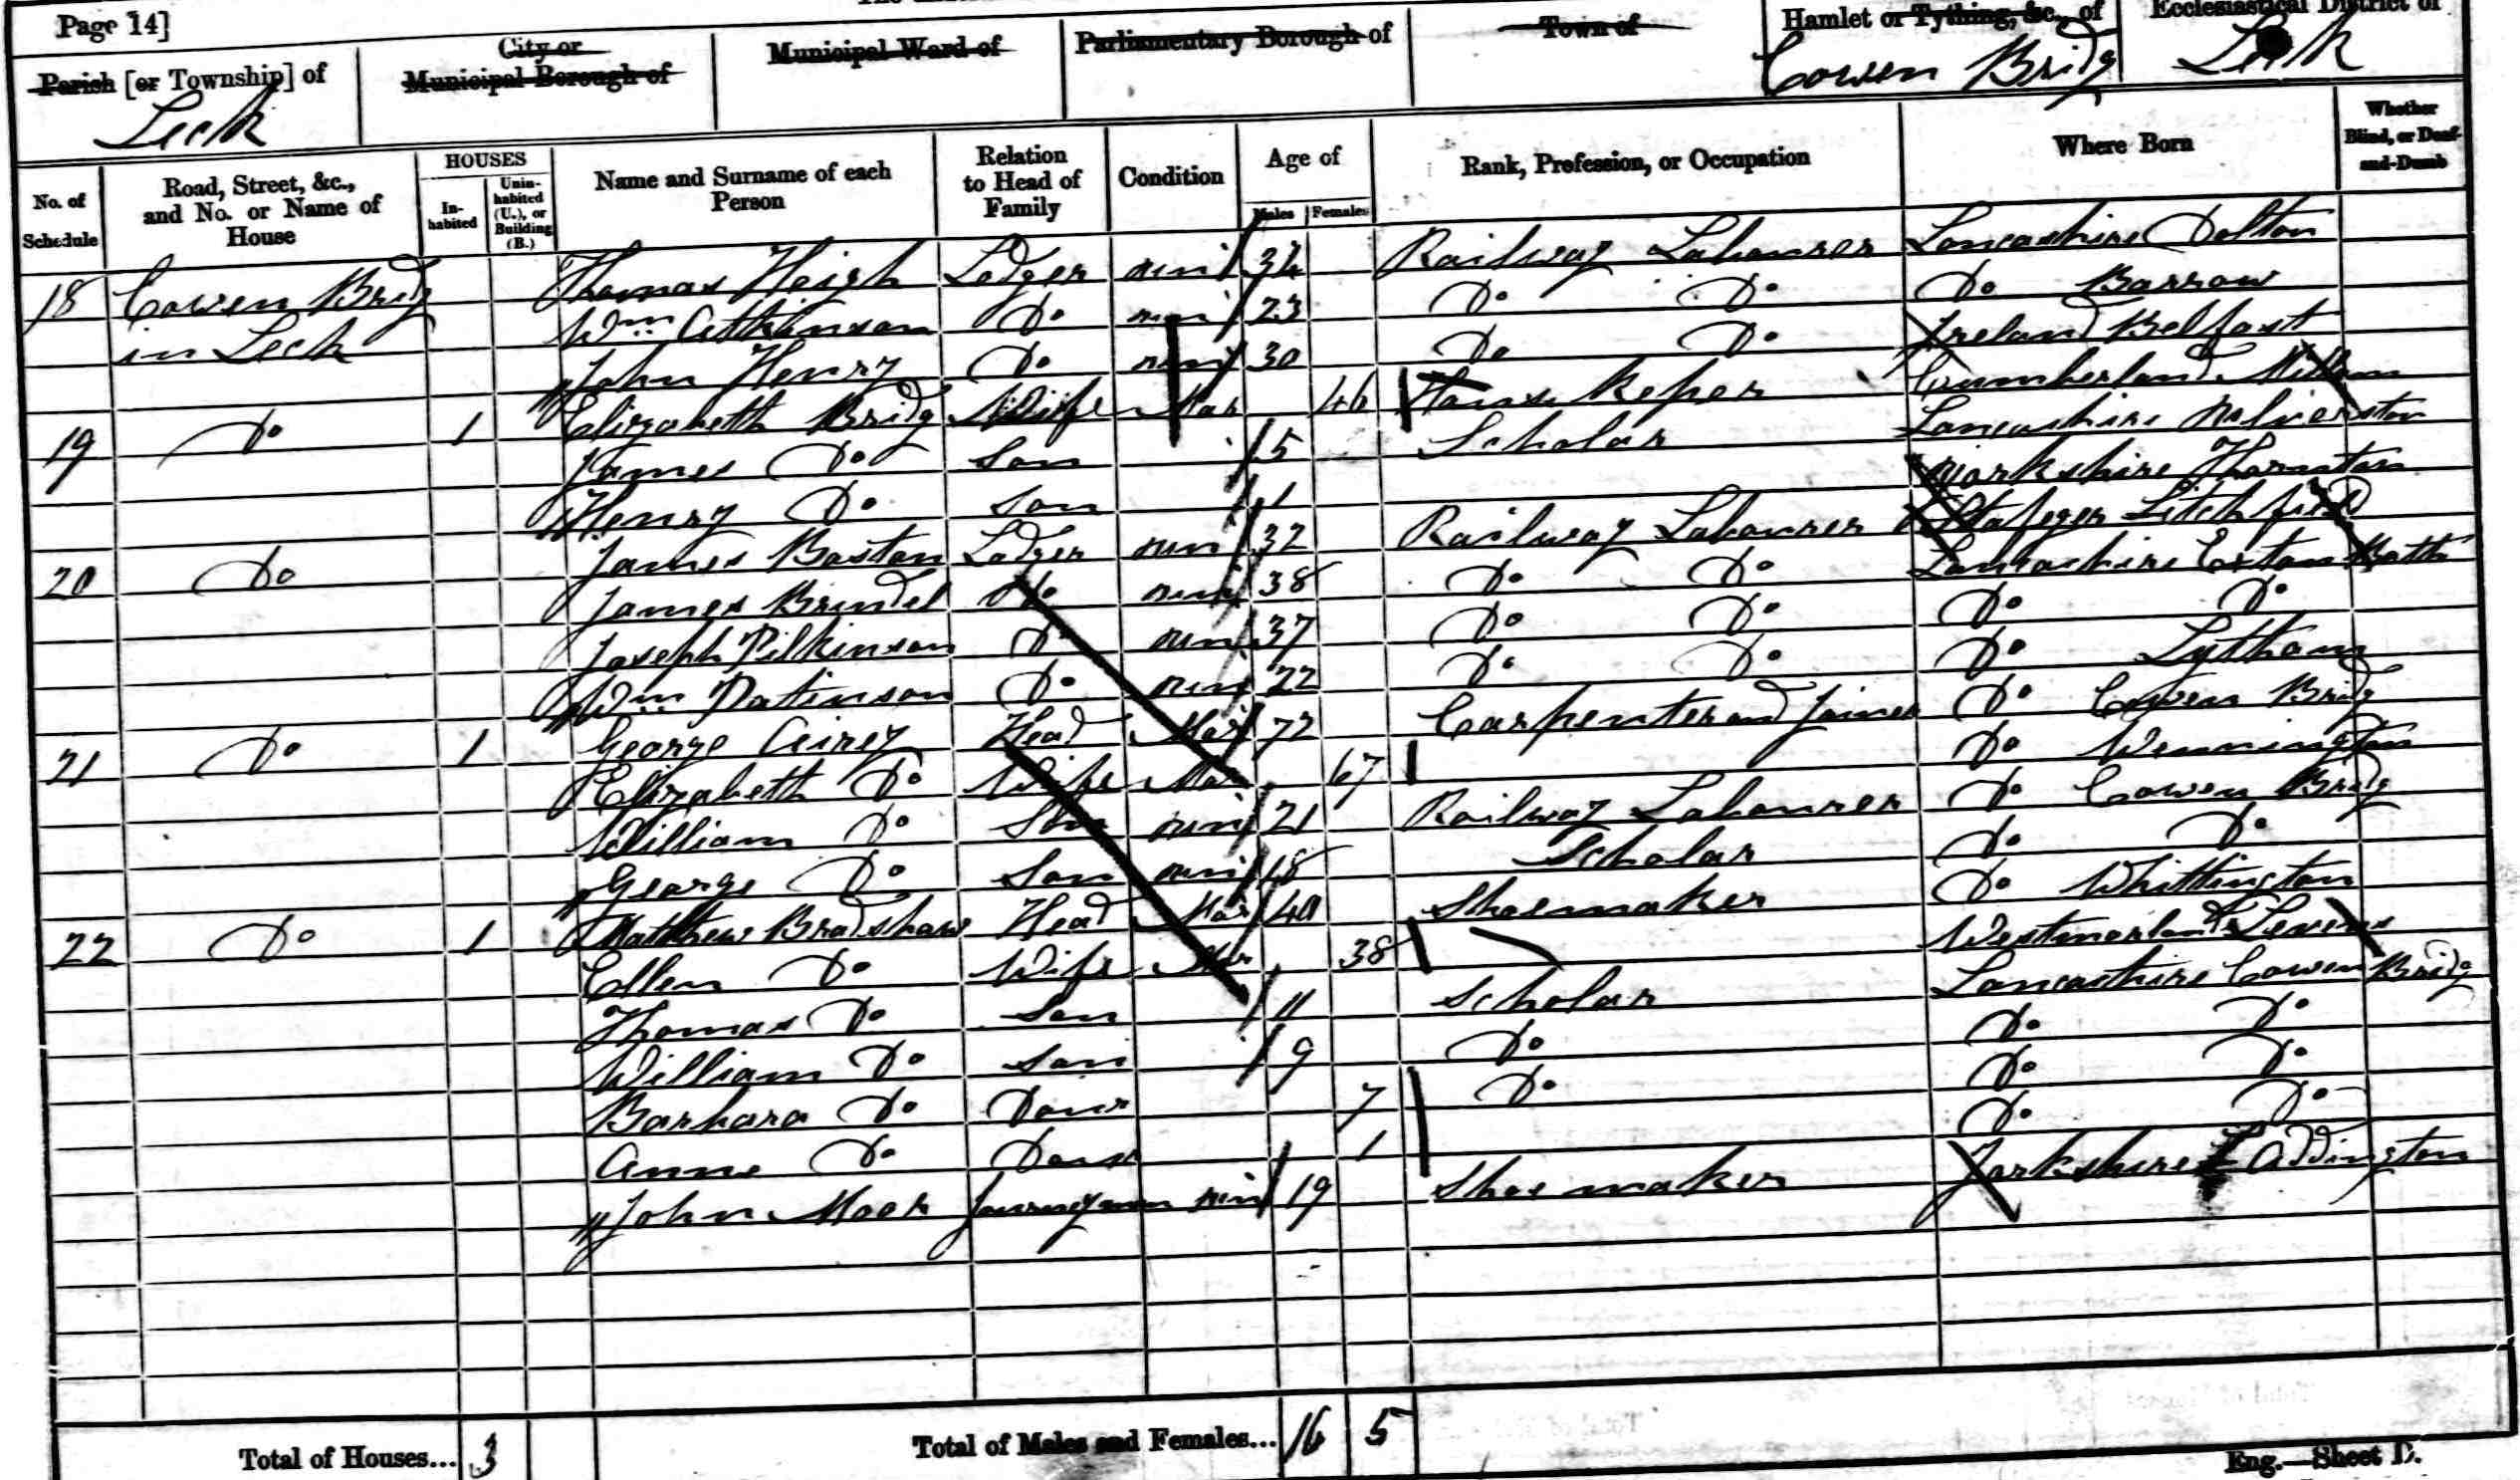 Page 14]
Parish [or Township] of
Leck
City or
Municipal Borough of
Municipal Ward of
Parliamentary Borough of
Town of
Hamlet or Tything, &c., of
Cowen Bridg
Ecclesiastical District of
Leck
No. of Schedule
Road, Street, &c., and No. or Name of House
HOUSES
In-habited
Unin-habited (U.), or Building (B.)
Name and Surname of each Person
Relation to Head of Family
Condition
Age of
Males Females
Rank, Profession, or Occupation
Where Born
Whether Blind, or Deaf-and-Dumb
18 Cowen Bridg Thomas Heigh Lodger un 34 Railway Labourer Lancashire Dalton
in Leck Wm Attkinson Do un 23 Do Do Do Barrow
John Henry Do un 30 Do Do Ireland Belfast
19 Do 1 Elizabeth Bridg Wife Mar 46 House Keper Cumberland Millom
James Do Son 5 Scholar Lancashire Ulverston
Henry Do Son 1 Yorkshire Thornton
20 Do James Baston Lodger un 32 Railway Labourer Litchfield
James Brindel Do un 38 Do Do Lancashire Exton
Joseph Pilkinson Do un 37 Do Do Do Do
Wm Patinson Do un 22 Do Do Do Lytham
21 Do 1 George Airey Head Mar 72 Carpenter and Joiner Do Cowen Bridg
Elizabeth Do Wife Mar 67 Do Wennington
William Do Son un 21 Railway Labourer Do Cowen Bridg
George Do Son un 18 Scholar Do Do
22 Do 1 Matthew Bradshaw Head Mar 40 Shoemaker Do Whittington
Ellen Do Wife Mar 38 Westmorland Levens
Thomas Do Son 11 Scholar Lancashire Cowen Bridg
William Do Son 9 Do Do Do
Barbara Do Dour 7 Do Do Do
Anne Do Dour 1 Do Do
John Moor Journeyman un 19 Shoe maker Yorkshire Addington
Total of Houses... 3
Total of Males and Females... 16 5
Eng.—Sheet D.